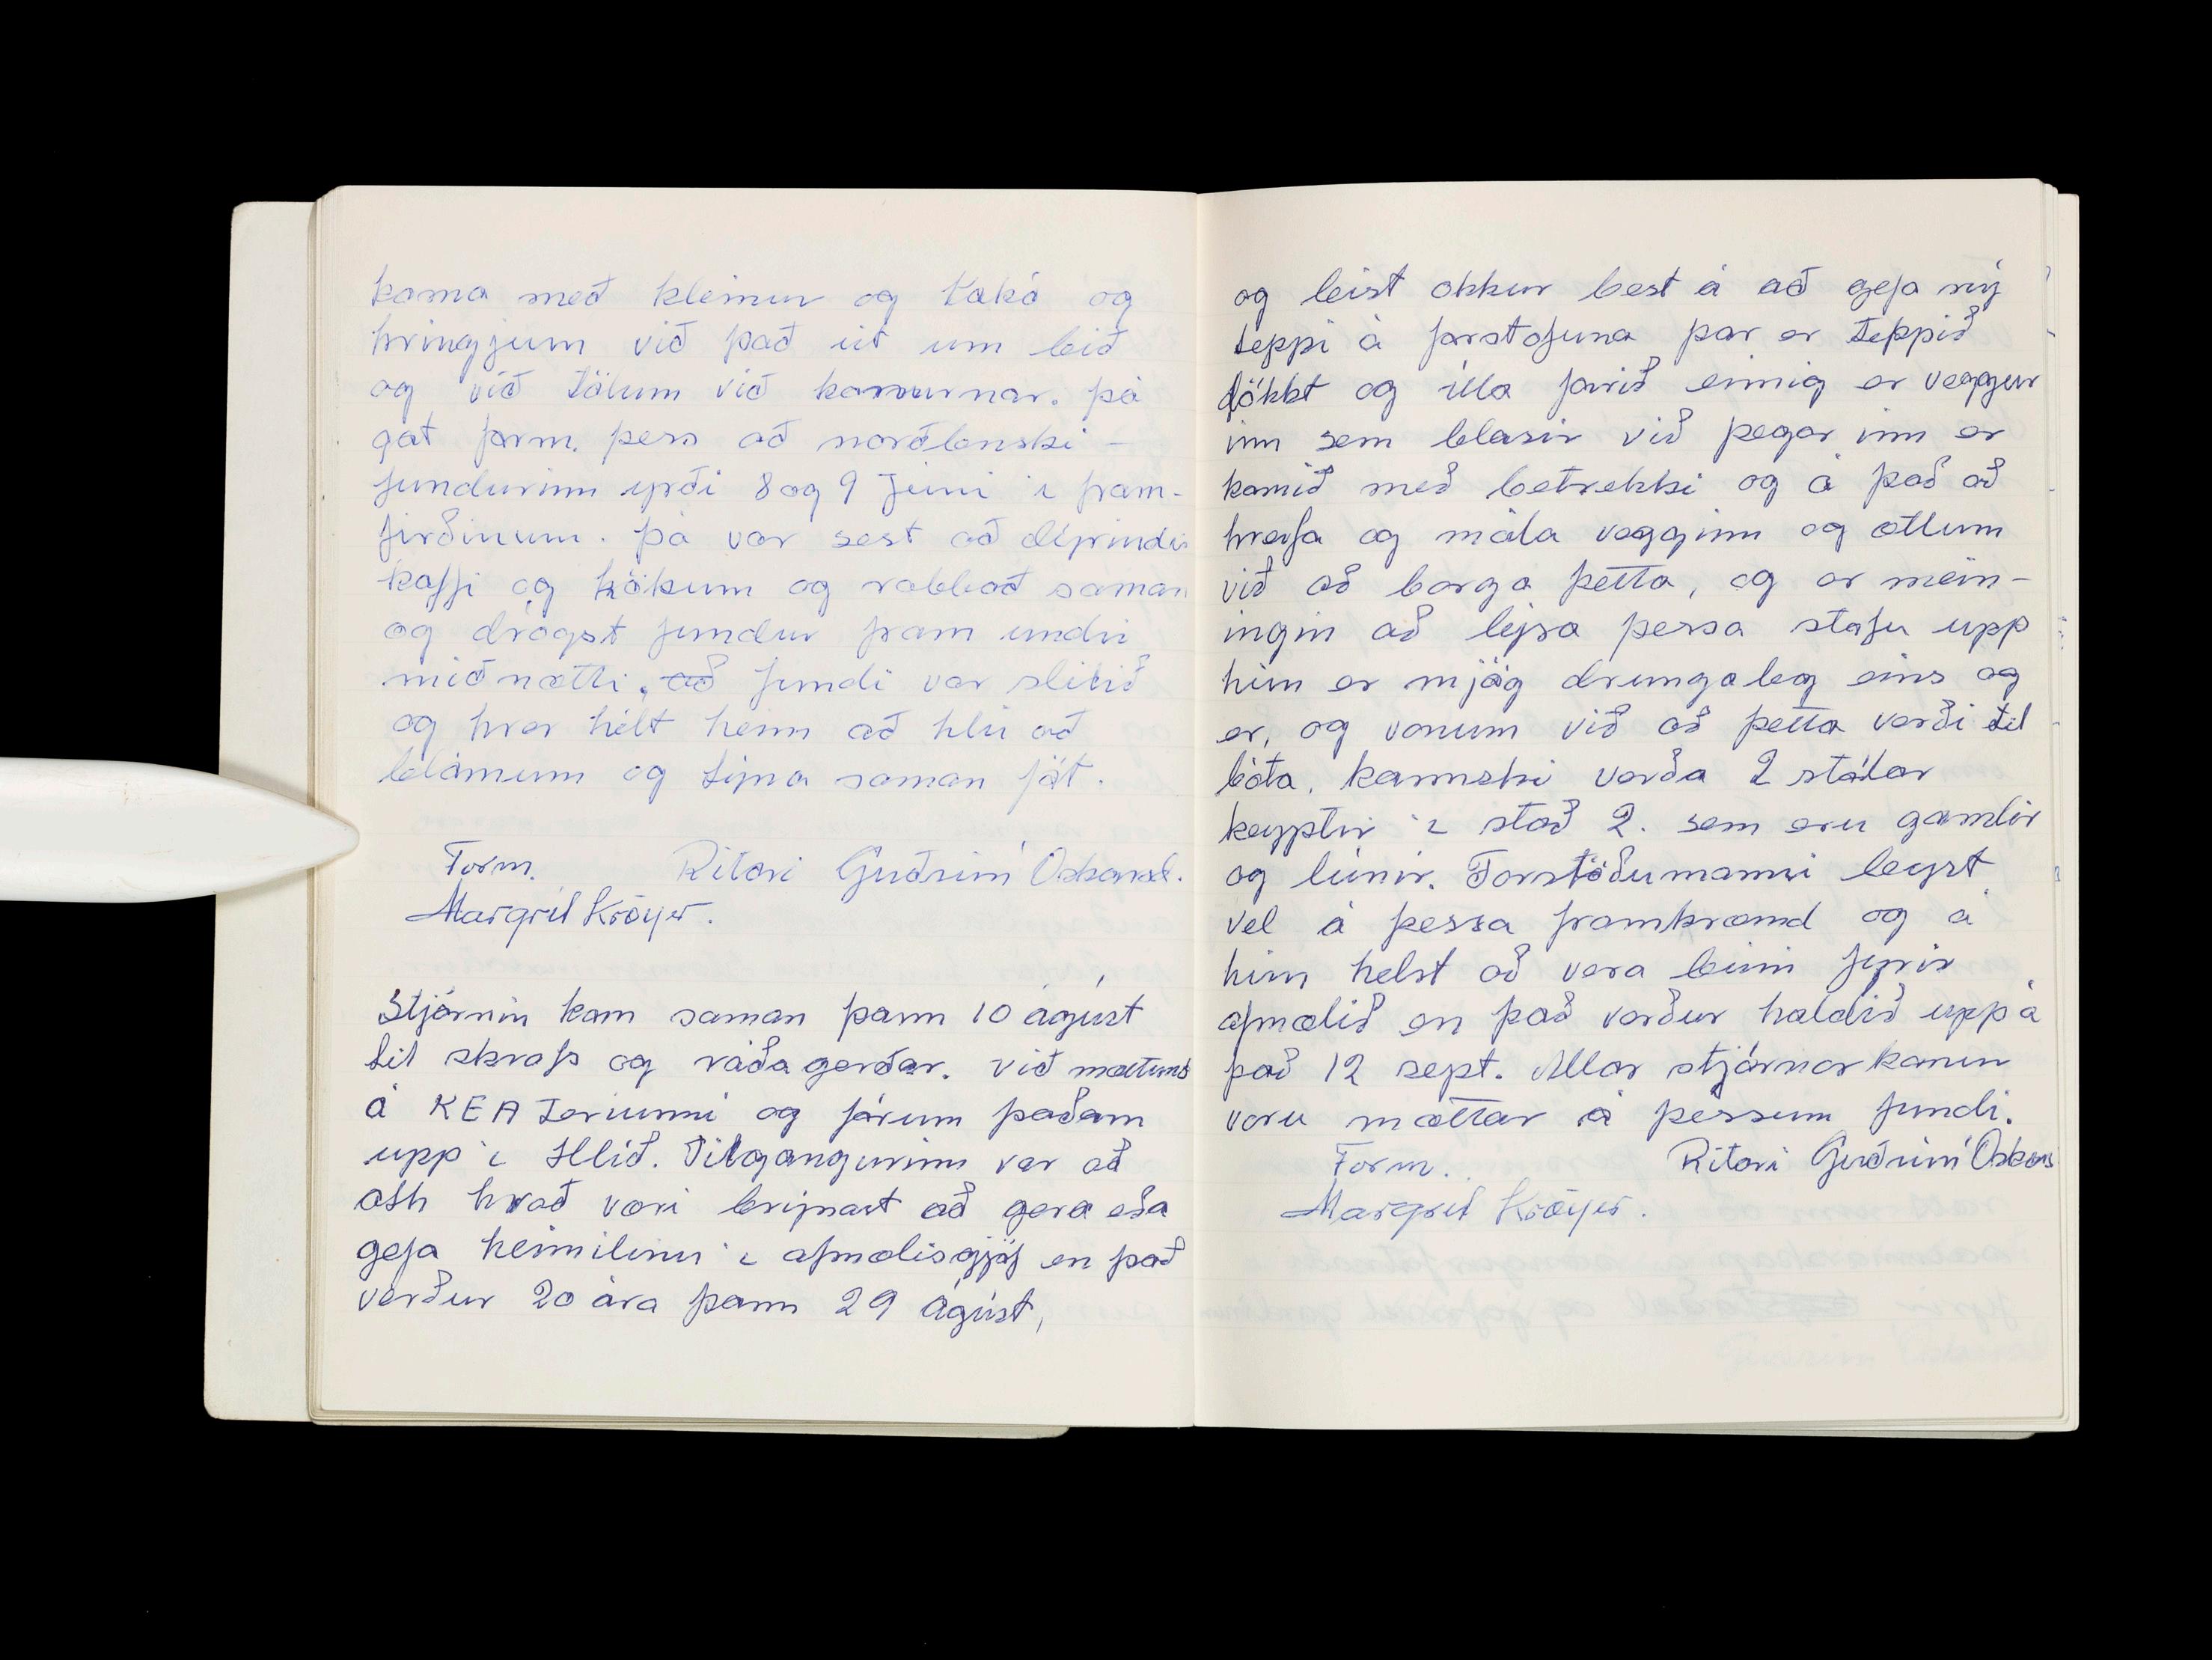 koma með kleinur og Kakó og
hringjum við það út um leið
og við tölum við konurnar. þá
gat form. þess að norðlenski-
fundurinn yrði 8 og 9 Júní í fram-
firðinum. þá var sest að dýrindis
kaffi og kökum og rabbað saman
og drógst fundur fram undir
miðnætti, að fundi var slitið
og hver hélt heim að hlú að
blómum og týna saman föt.
Form. Ritari Guðrún Óskarsd.
Margrét Kröyer.
Stjórnin kom saman þann 10 ágúst
til skrafs og ráðagerðar. við mættums
á KEA Teriunni og fórum þaðann
upp í Hlíð. Tilgangurinn var að
ath hvað væri brýnast að gera eða
gefa heimilinu í afmælisgjöf en það
verður 20 ára þann 29 ágúst,
og leist okkur best á að gefa ný
teppi á forstofuna þar er teppið
dökkt og illa farið einnig er veggur
inn sem blasir við þegar inn er
komið með betrekki og á það að
hreifa og mála vegginn og ætlum
við að borga þetta, og er mein-
ingin að lýsa þessa stofu upp
hún er mjög drungaleg eins og
er, og vonum við að þetta verði til
bóta, kannski verða 2 stólar
keyptir í stað 2. sem eru gamlir
og lúnir. Forstöðumanni leyst
vel á þessa framkvæmd og á
hún helst að vera búin fyrir
afmælið en það verður haldið upp á
það 12 sept. Allar stjórnarkonur
voru mættar á þessum fundi.
Form. Ritari Guðrún Óskars
Margrét Kröyer.